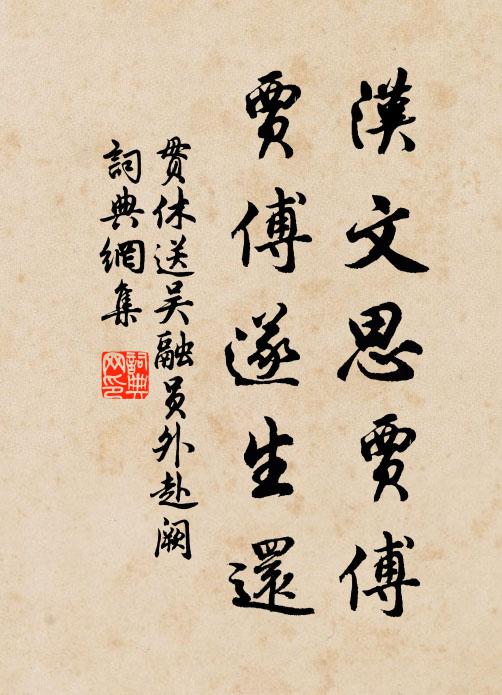 漢文思賈傅
賈傅遂生還
貫休送吴融員外赴阙
詞典網集
詞典
网印